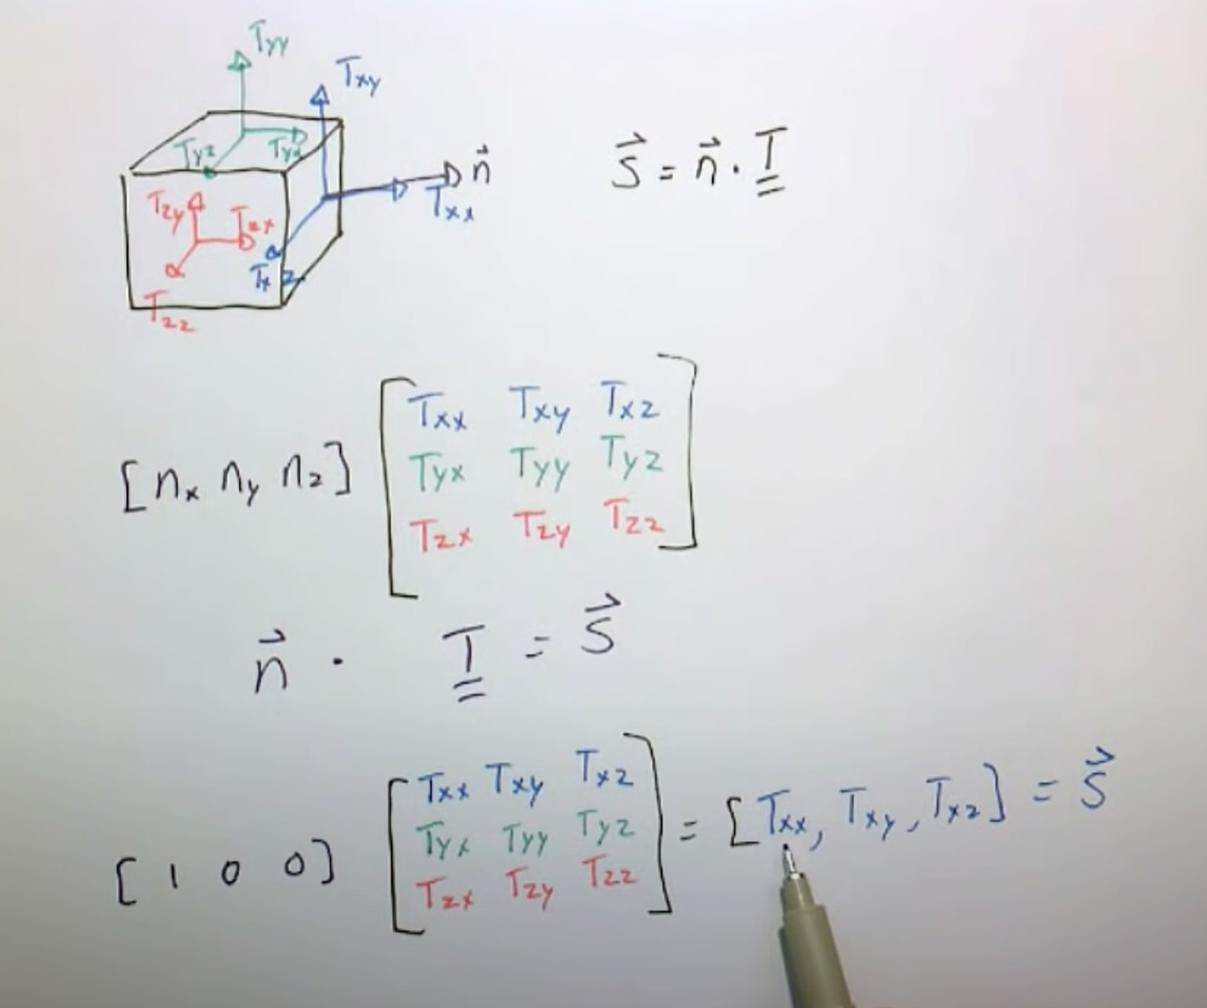 Tyy
Txy
Tyz Tyx
n⃗
Txx
s⃗ = n⃗ · T
Tzy Tzx
Txz
Tzz
[nx ny nz] [Txx Txy Txz
Tyx Tyy Tyz
Tzx Tzy Tzz]
n⃗ · T = s⃗
[1 0 0] [Txx Txy Txz
Tyx Tyy Tyz
Tzx Tzy Tzz] = [Txx, Txy, Txz] = s⃗